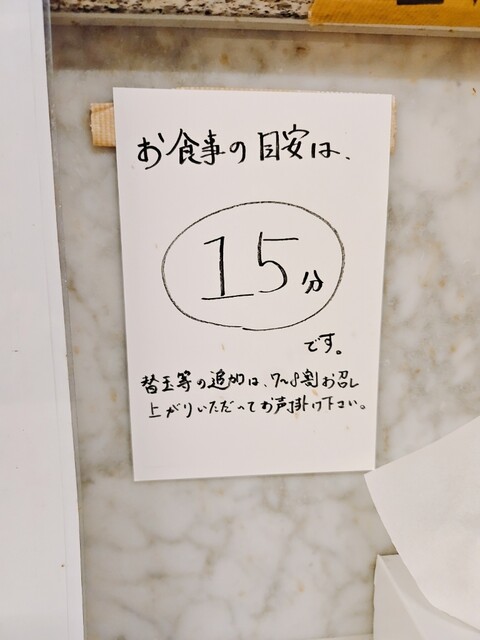 お食事の目安は、
15分
です。
替玉等の追加は、7~8割お召し
上がりいただってお声掛け下さい。